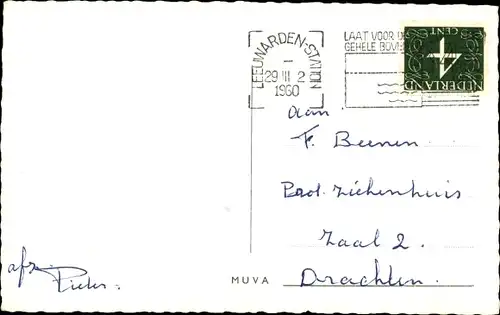 LEEUWARDEN-STATION
29 III 2
1960
LAAT VOOR
GEHELE
NEDERLAND
4
CENT
aan
F. Beenen
Prot. Ziekenhuis
Zaal 2.
Drachten.
afz.
Pieter.
MUVA